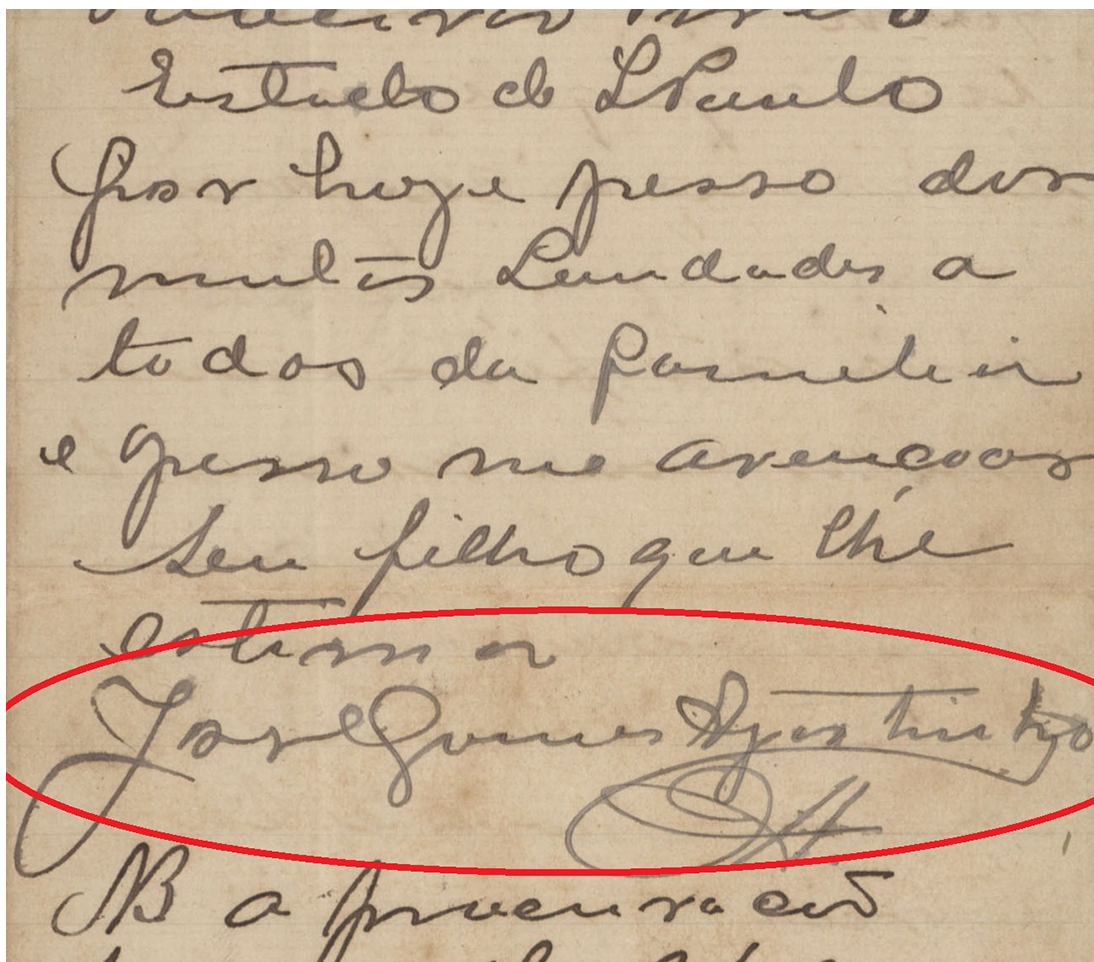 Estado de S Paulo
por hoge pesso dar
muitas Saudades a
todos da familia
e pesso me avençoar
seu filho que lhe
estima
José Gomes Agostinho
NB a procuração